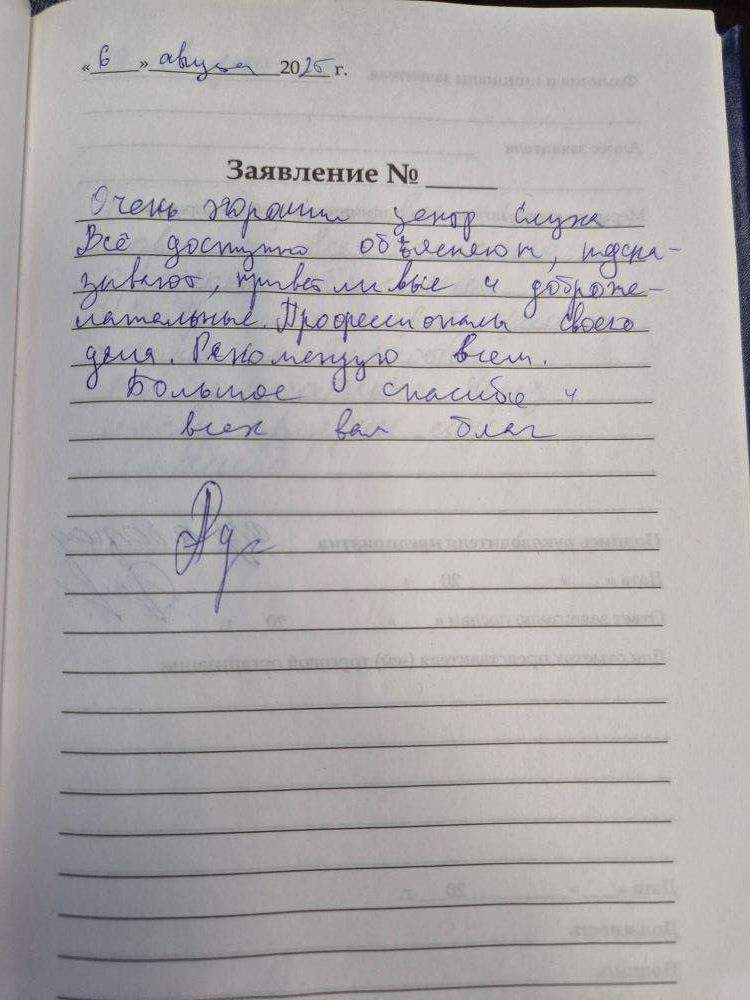 «6» августа 2025 г.
Заявление № ____
Очень хороший центр слуха
Всё доступно объясняют, подска-
зывают, приветливые и доброже-
лательные. Профессионалы своего
дела. Рекомендую всем.
Большое спасибо и
всех вам благ